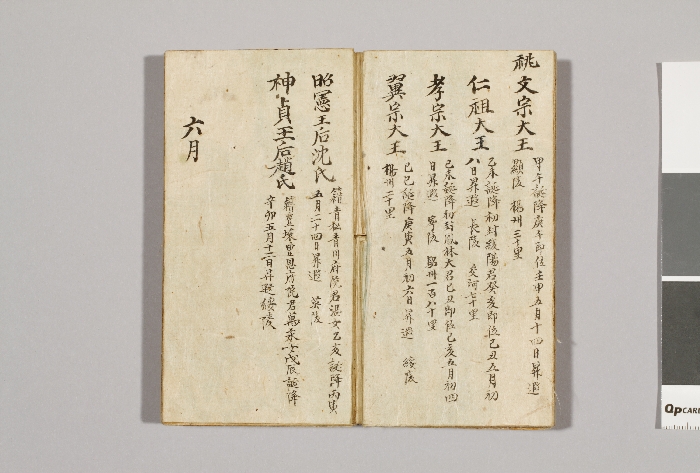 祧文宗大王
甲午誕降庚午即位壬申五月十四日昇遐
顯陵 楊州三十里
仁祖大王
乙未誕降初封綾陽君癸亥即位己丑五月初
八日昇遐 長陵 交河七十里
孝宗大王
己未誕降初封鳳林大君己丑即位己亥五月初四
日昇遐 寧陵 驪州一百八十里
翼宗大王
己巳誕降庚寅五月初六日昇遐 綏陵
楊州二十里
昭憲王后沈氏
籍青松青川府院君溫女乙亥誕降丙寅
五月二十四日昇遐 英陵
神貞王后趙氏
籍豊壤豊恩府院君萬永女戊辰誕降
辛卯五月十二日昇遐綏陵
六月
QpCARD